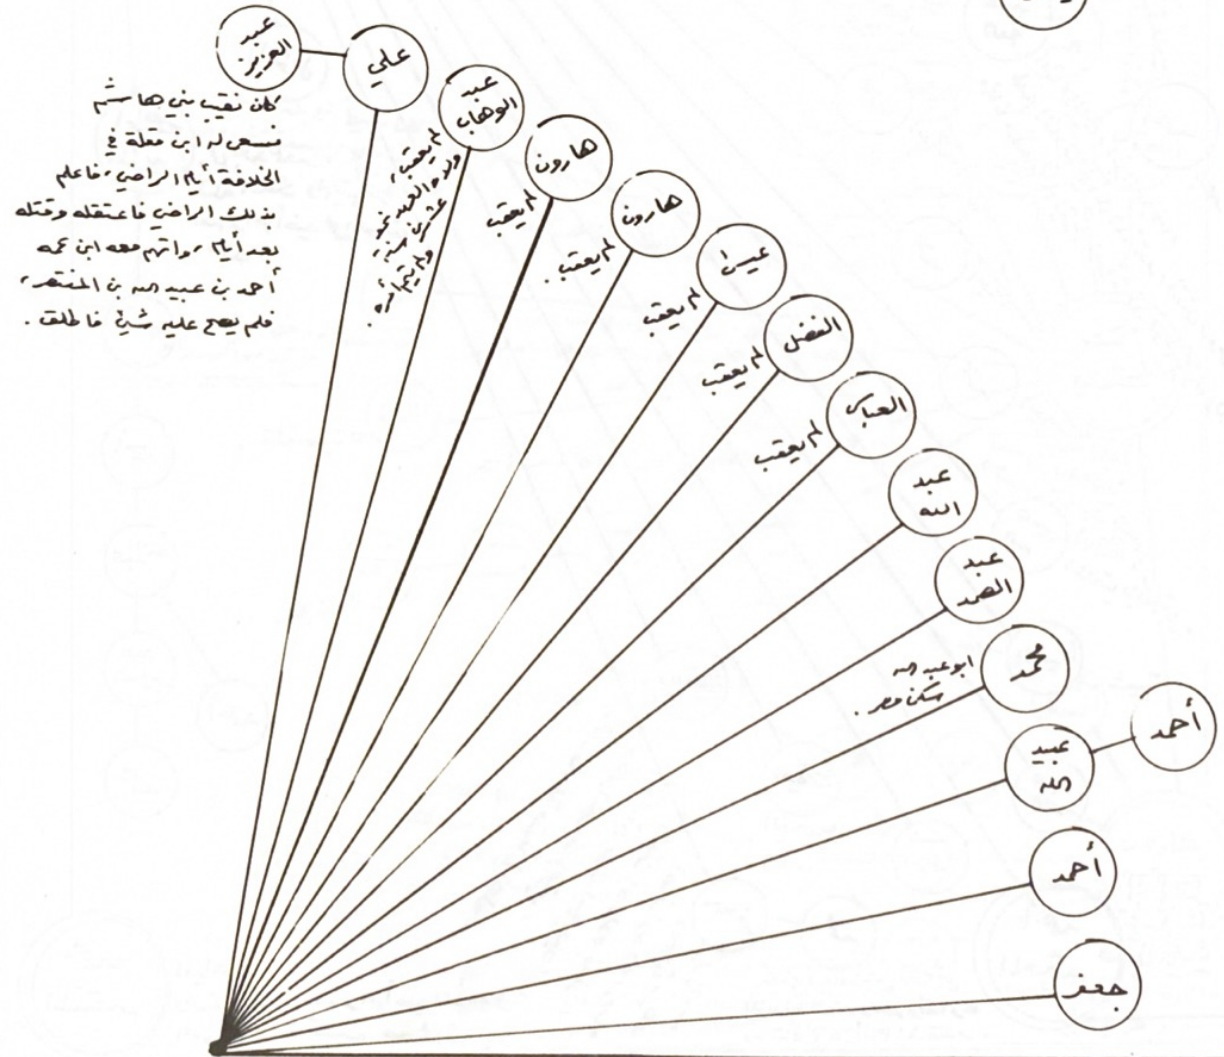 عبد
العزيز
علي
كان نقيب بني هاشم
فسعى له ابن مقلة في
الخلافة أيام الراضي، فاعلم
بذلك الراضي فاعتقله وقتله
بعد أيام، واتهم معه ابن عمه
أحمد بن عبيد الله بن المنتصر،
فلم يصح عليه شيئ فاطلق.
عبد
الوهاب
لم يعقب،
ولاه العهد نحو
هارون
لم يعقب
هارون
لم يعقب
عيسى
لم يعقب
الفضل
لم يعقب
العباس
لم يعقب
عبد
الله
عبد
الصمد
محمد
ابو عبد الله
سكن مصر.
عبيد
الله
أحمد
أحمد
جعفر